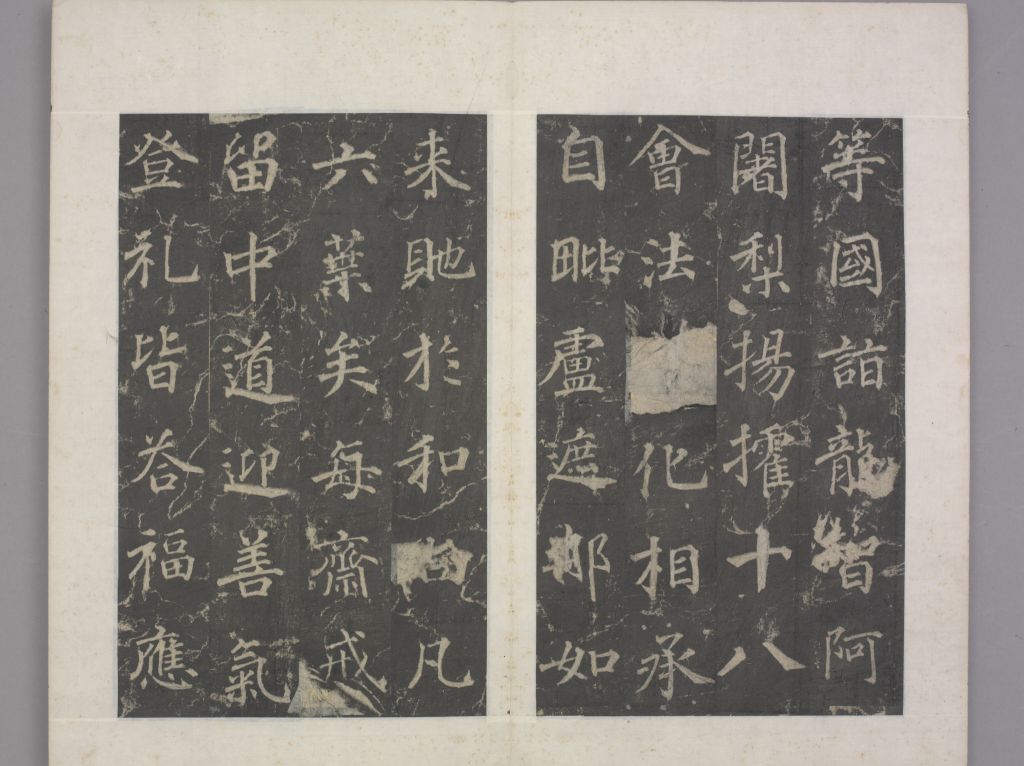 等國詣龍智阿
闍梨揚攉十八
會法化相承
自毗盧遮那如
来貤於和尚凡
六葉矣每齋戒
留中道迎善氣
登礼皆荅福應